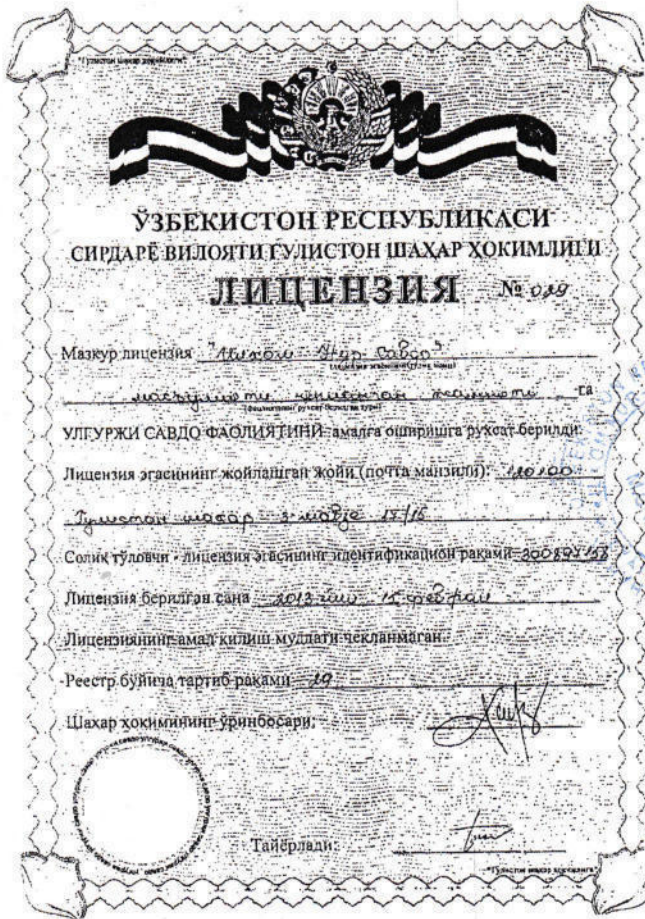 "Гулистон шаҳар ҳокимлиги"
ЎЗБЕКИСТОН РЕСПУБЛИКАСИ
СИРДАРЁ ВИЛОЯТИ ГУЛИСТОН ШАҲАР ҲОКИМЛИГИ
ЛИЦЕНЗИЯ № 029
Мазкур лицензия Нур Савдо"
масъулияти чекланган жамияти га
УЛГУРЖИ САВДО ФАОЛИЯТИНИ амалга оширишга рухсат берилди.
Лицензия эгасининг жойлашган жойи (почта манзили): 120100
Гулистон шаҳар 3-мавзе
Солиқ тўловчи - лицензия эгасининг идентификацион рақами
Лицензия берилган сана 2013 йил 15 феврал
Лицензиянинг амал қилиш муддати чекланмаган
Реестр бўйича тартиб рақами 29
Шаҳар ҳокимининг ўринбосари:
Тайёрлади:
"Гулистон шаҳар ҳокимлиги"